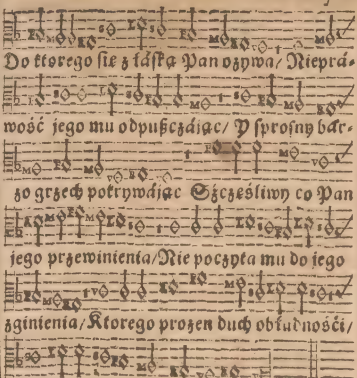 Do ktorego się z łáſką Pan ozywa/ Niepra-
wość jego mu odpuſzczájąc/ Y ſproſny bár-
zo grzech pokrywájąc Szczęśliwy co Pan
jego przewinienia/Nie poczyta mu do jego
zginienia/Ktorego prozen duch obłudnośći/